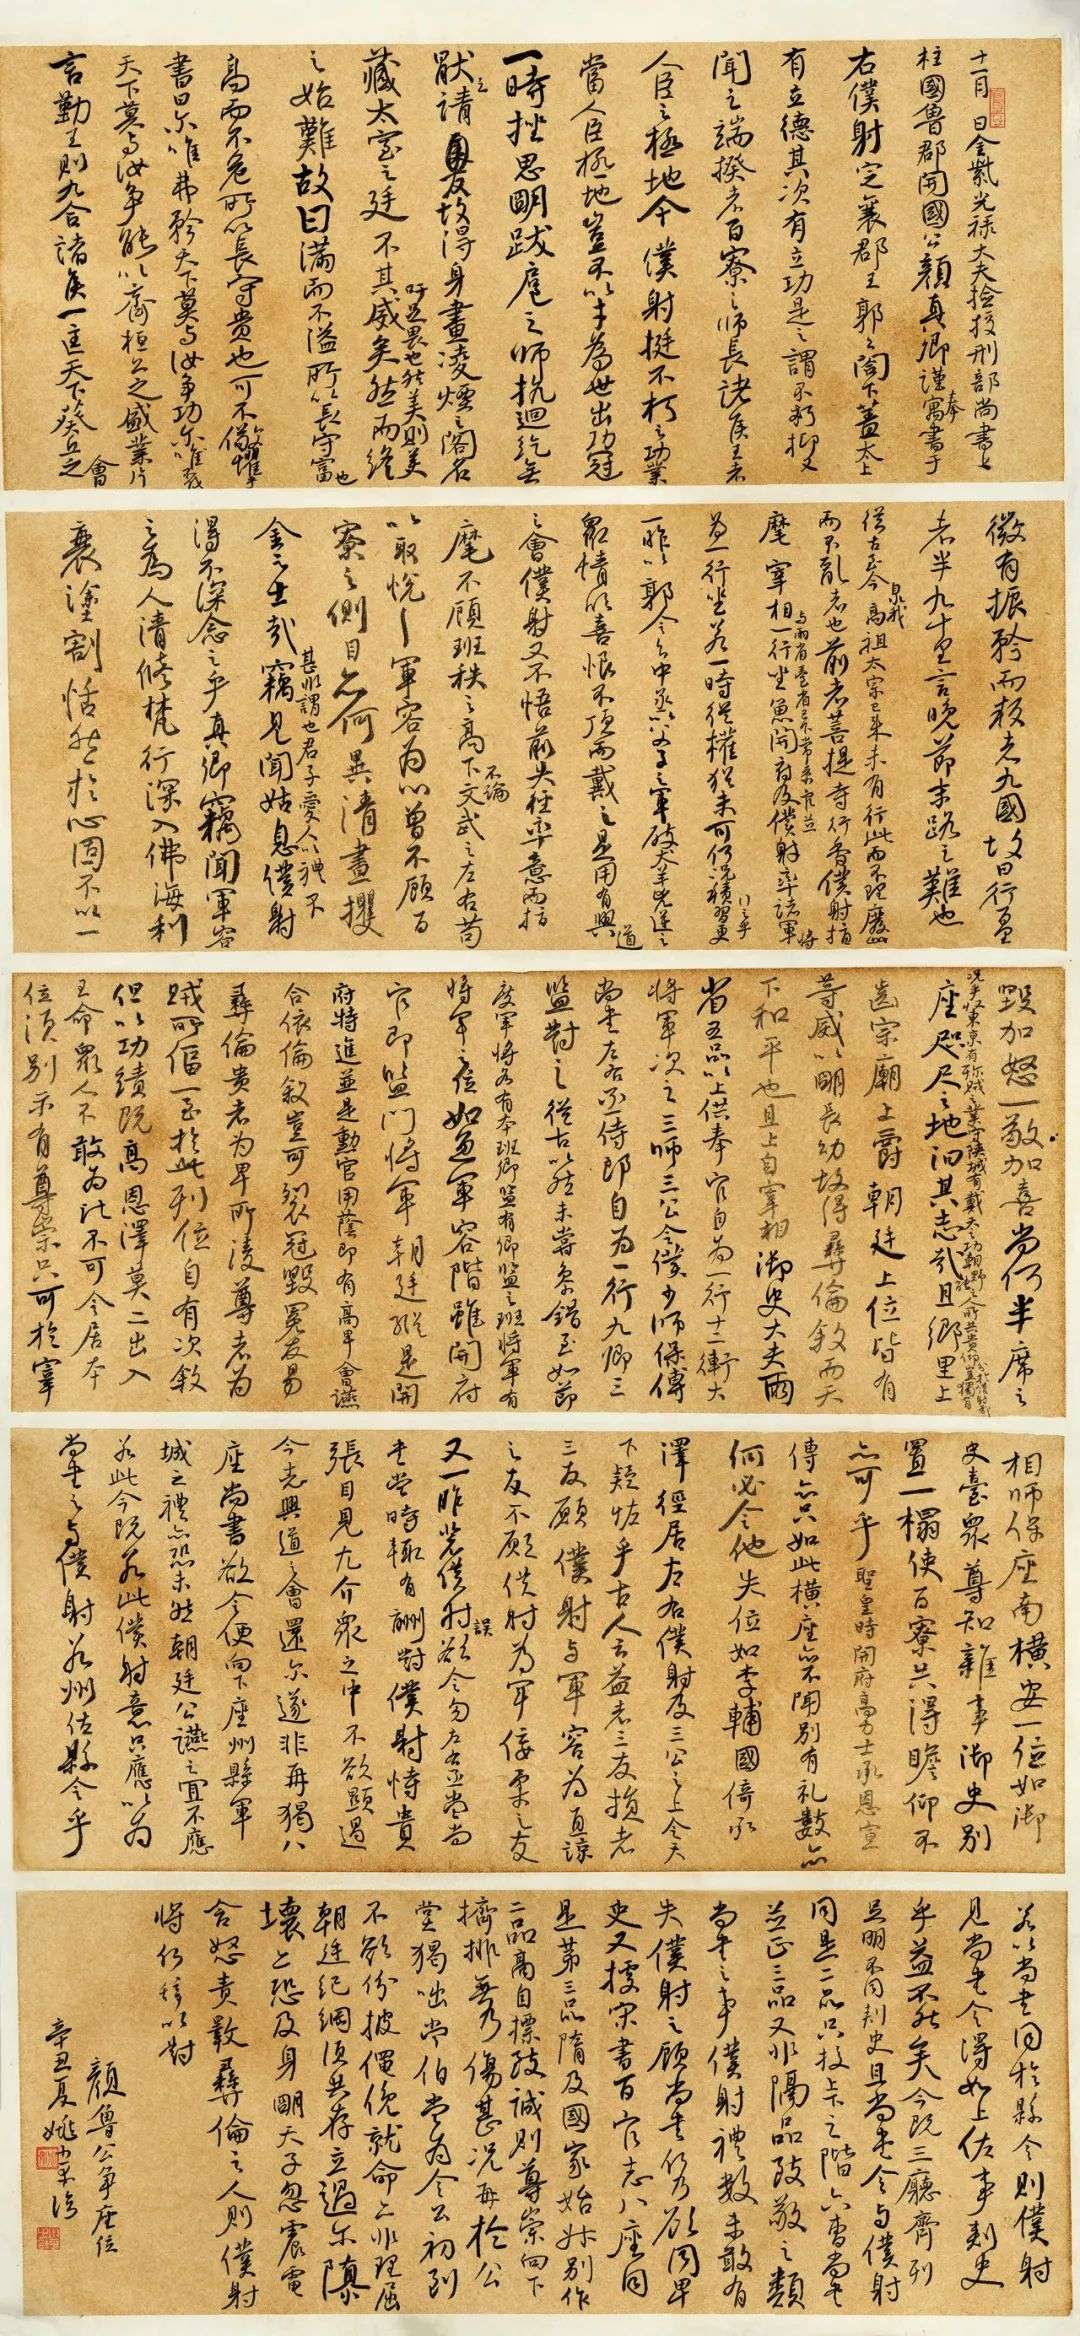 十一月 日金紫光祿大夫撿挍刑部尚書上
柱國魯郡開國公顏真卿謹奉寓書于
右僕射定襄郡王郭公閣下蓋太上
有立德其次有立功是之謂不朽抑又
聞之端揆者百寮之師長諸侯王者
人臣之極地今僕射挺不朽之功業
當人臣極地豈不以才為世出功冠
一時挫思明跋扈之師抗迴紇無
猒之請故得身畫凌煙之閣名
藏太室之廷吁足畏也然美則美不其威矣然而終
之始難故曰滿而不溢所以長守富也
高而不危所以長守貴也可不儆懼乎
書曰尒唯弗矜天下莫与汝争功尒唯不伐
天下莫与汝争能以齊桓公之盛業片
言勤王則九合諸侯一匡天下葵丘之會
微有振矜而叛者九國故曰行百里
者半九十里言晚節末路之難也
從古至今泉我高祖太宗已來未有行此而不理廢此
而不亂者也前者菩提寺行香僕射指
麾宰相与兩省臺省已下常参官並一行坐魚開府及僕射率諸軍將
為一行坐若一時從權猶未可何況積習更行之乎
一昨以郭令公中丞以父子之軍破犬羊兇逆之
衆情欣喜恨不頂而戴之是用有興道
之會僕射又不悟前失徑率意而指
麾不顧班秩之高下不論文武之左右苟
以取悅軍容為心曾不顧百
寮之側目亦何異清晝攫
金之士哉甚非謂也君子愛人以禮不竊見聞姑息僕射
得不深念之乎真卿竊聞軍容
之為人清修梵行深入佛海利
衰塗割恬然於心固不以一
毀加怒一敬加喜尚何半席之
況乎收東京有殄賊之業守陝城有戴天之功朝野之人所共貴仰豈獨有分於僕射哉
座咫尺之地汩其志哉且鄉里上
齒宗廟上爵朝廷上位皆有
等威以明長幼故得彝倫敘而天
下和平也且上自宰相御史大夫兩
省五品以上供奉官自為一行十二衛大
將軍次之三師三公令僕少師保傅
尚書左右丞侍郎自為一行九卿三
監對之從古以然未嘗参錯至如節
度軍將各有本班卿監有卿監之班將軍有
將軍之位如魚軍容階雖開府
官即監門將軍朝廷列是開
府特進並是勳官用蔭即有高卑會讌
合依倫敘豈可裂冠毀冕反易
彝倫貴者為卑所凌尊者為
賊所偪一至於此列位自有次敘
但以功績既高恩澤莫二出入
王命衆人不敢為比不可令居本
位須別示有尊崇只可於宰
相師保座南橫安一位如御
史臺衆尊知雜事御史別
置一榻使百寮共得瞻仰不
亦可乎聖皇時開府高力士承恩宣
傳亦只如此橫座亦不聞別有礼數亦
何必令他失位如李輔國倚承
澤徑居左右僕射及三公之上令天
下疑怪乎古人云益者三友損者
三友願僕射与軍容為直諒
之友不願僕射為軍佞柔之友
又一昨裴僕射誤欲令勾左右丞當尚
書當時輙有酬對僕射恃貴
張目見尤介衆之中不欲顯過
今者興道之會還尒遂非再猲八
座尚書欲令便向下座州縣軍
城之禮亦恐未然朝廷公讌之宜不應
若此今既若此僕射意只應以為
尚書之与僕射若州佐縣令乎
若以尚書同於縣令則僕射
見尚書令得如上佐事刺史
乎益不然矣今既三廳齊列
足明不同刺史且尚書令与僕射
同是二品只挍上下之階六曹尚書
並正三品又非隔品致敬之類
尚書之事僕射禮數未敢有
失僕射之顧尚書何乃欲同卑
吏又據宋書百官志八座同
是第三品隋及國家始升別作
二品高自標致誠則尊崇向下
擠排無乃傷甚況再於公
堂猲咄常伯當為令公初到
不欲紛披僶俛就命亦非理屈
朝廷紀綱須共存立過尒隳
壞亦恐及身明天子忽震電
含怒責斁彝倫之人則僕射
將何辭以對
顏魯公争座位
辛丑夏姚臨